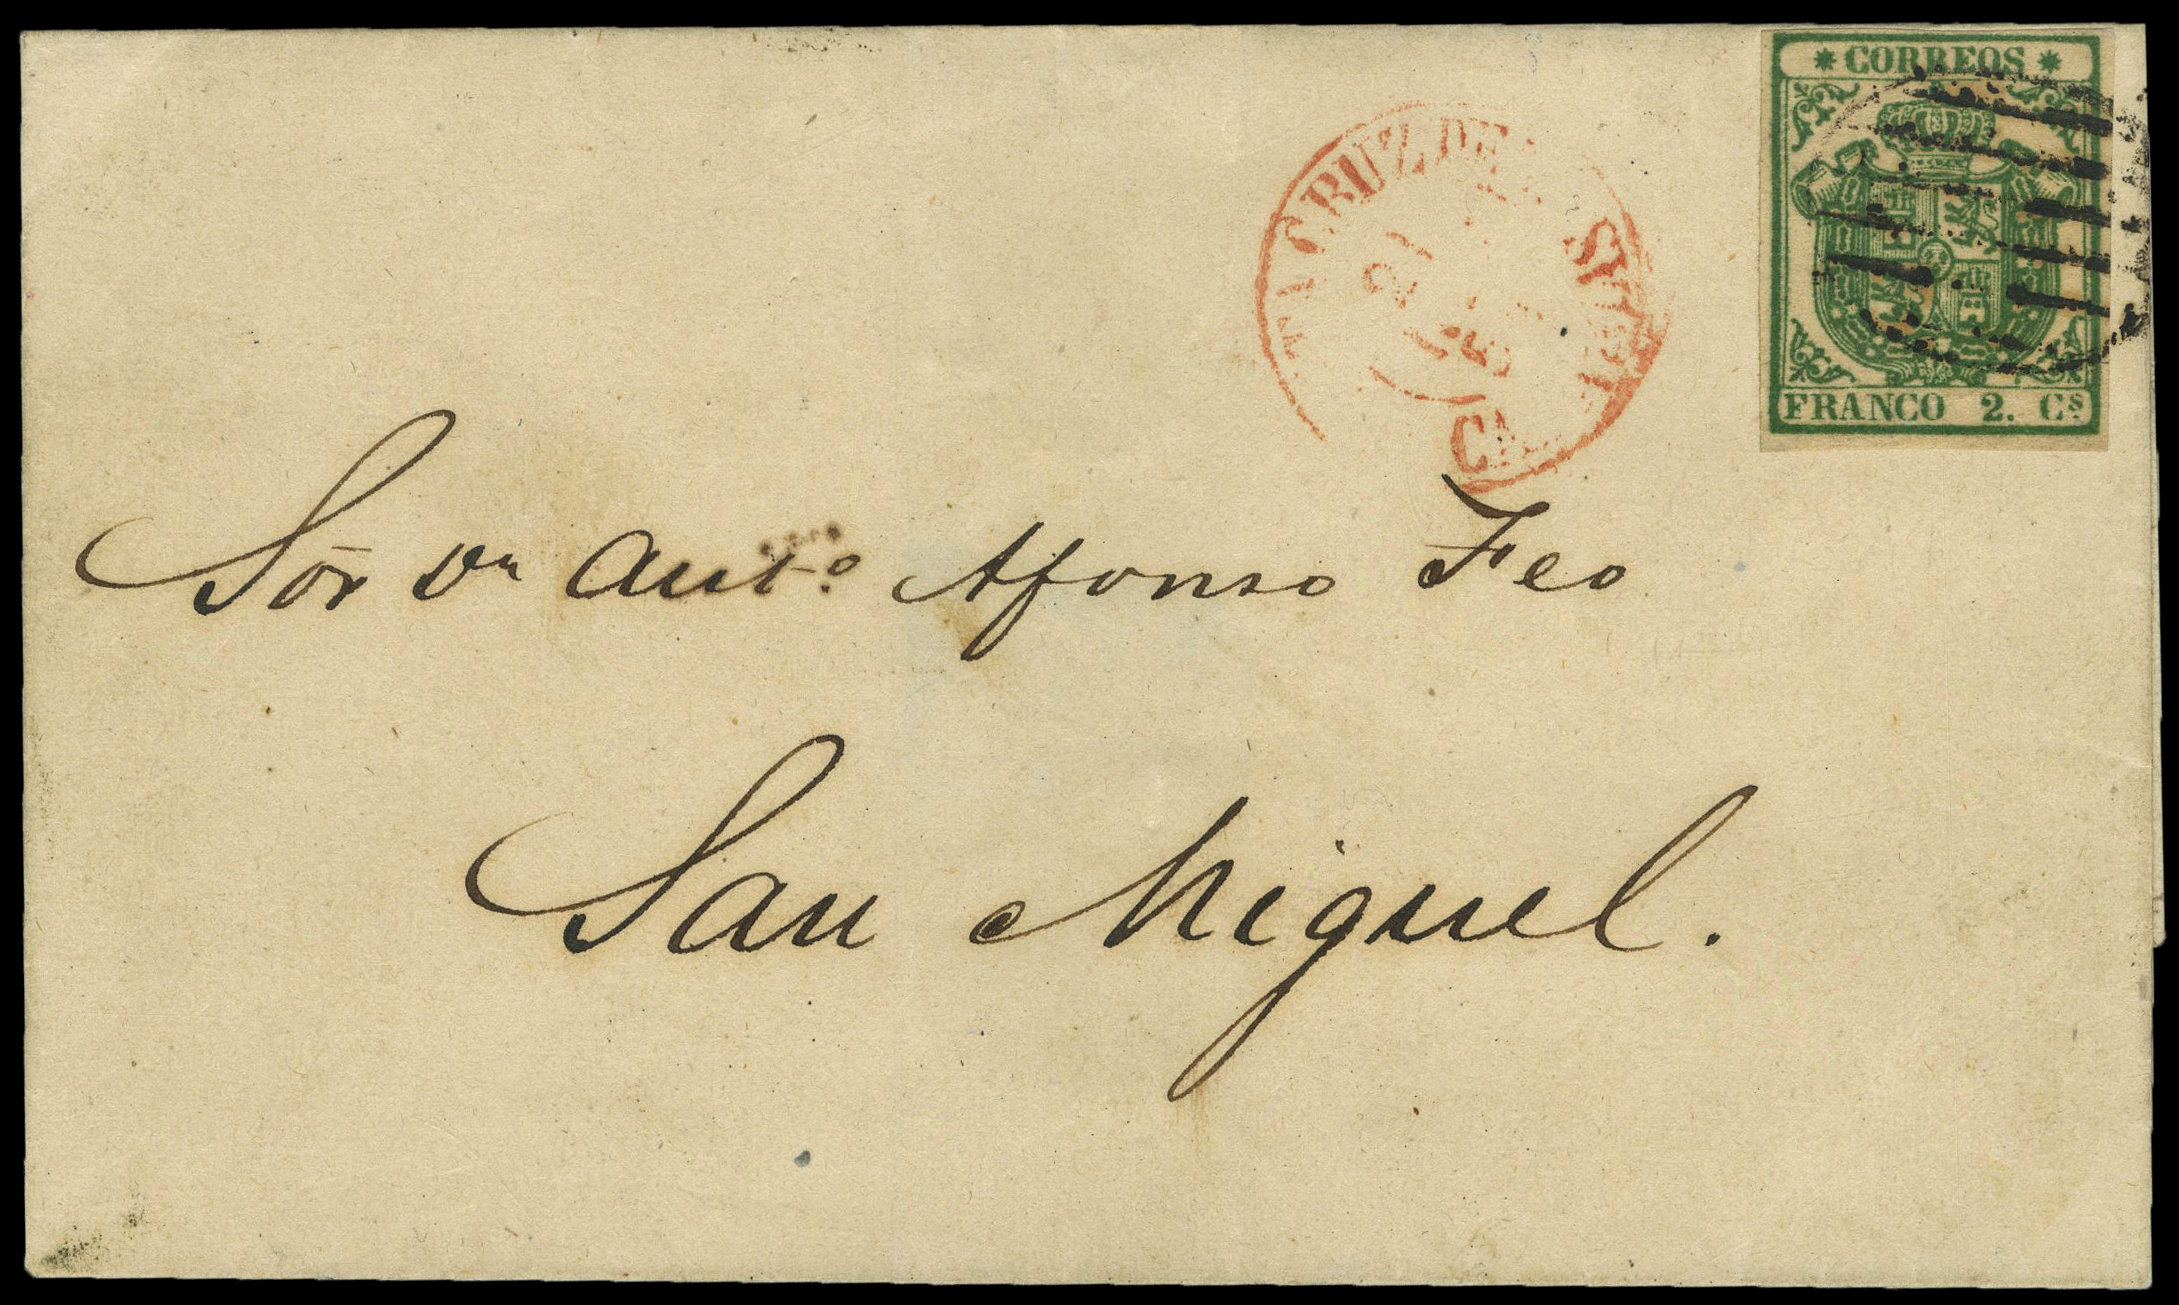 * CORREOS *
FRANCO 2. Cs.
CRUZ DE
CA
Sōr Dn Anto. Afonso Feo
San Miguel.